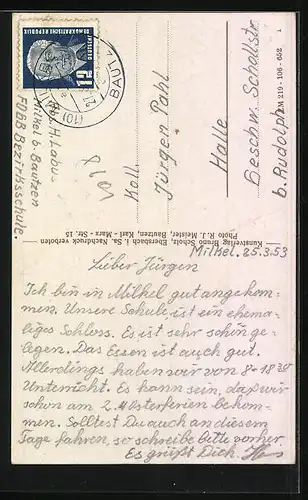 Milkel. 25.3.53
Lieber Jürgen
Ich bin in Milkel gut angekom-
men. Unsere Schule ist ein ehema-
liges Schloss. Es ist sehr schön ge-
legen. Das Essen ist auch gut.
Allerdings haben wir von 8-18 30
Unterricht. Es kann sein, daß wir
schon am 2.4 Osterferien bekom-
men. Solltest Du auch an diesem
Tage fahren, so schreibe bitte vorher.
Es grüßt Dich
DEUTSCHE
DEMOKRATISCHE REPUBLIK
12
BAUT
(10)
Abs. H. Labu-
Milkel b. Bautzen
FDGB Bezirksschule.
Koll.
Jürgen Pahl
Halle
Geschw. Schollstr
b. Rudolph
M 219 · 106 · 652
Kunstverlag Bruno Scholz, Ebersbach i. Sa. Nachdruck verboten
Photo R. J. Meister, Bautzen, Karl-Marx-Str. 15